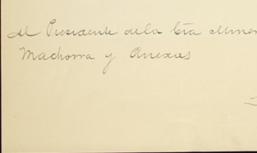 Al Presidente de la Cia Miner
Machorra y Anexas